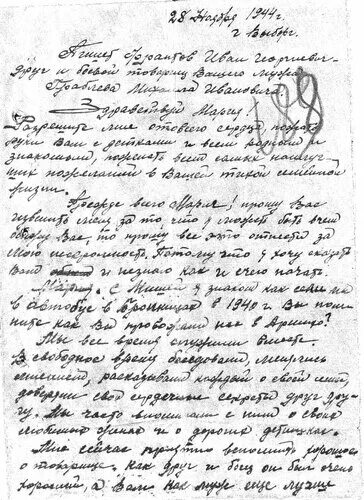 28 Ноября 1944 г.
г Выборг.
Пишет Франтов Иван Георгиевич
друг и боевой товарищ Вашего мужа
Михаила Ивановича.
Здравствуй Мария!
188
Разрешите мне от всего сердца пожать
руки Вам с детками и всем родным и
знакомым, пожелать всей самых наилуч-
ших пожеланий в Вашей тихой семейной
жизни.
Прежде всего Мария! прошу Вас
извинить меня за то что я может быть чем
Вас, то прошу все это отнести за
мою нескромность. Потому что я хочу сказать
Вам и не знаю как и с чего начать
Мария. с Мишей я знаком как сели на
в автобус в Бронницах в 1940 г Вы пом
ните как Вы провожали нас в Армию?
Мы все время служили вместе.
В свободное время беседовали, делились
мыслями, рассказывали каждый о своей семье,
доверяли свои сердечные секреты друг дру-
гу. Мы часто вспоминали с ним о своих
любимых женах и о дорогих детишках.
Мне сейчас приятно вспомнить хорошего
товарища. Как друг и боец он был очень
хороший, а Вам как муж еще лучше